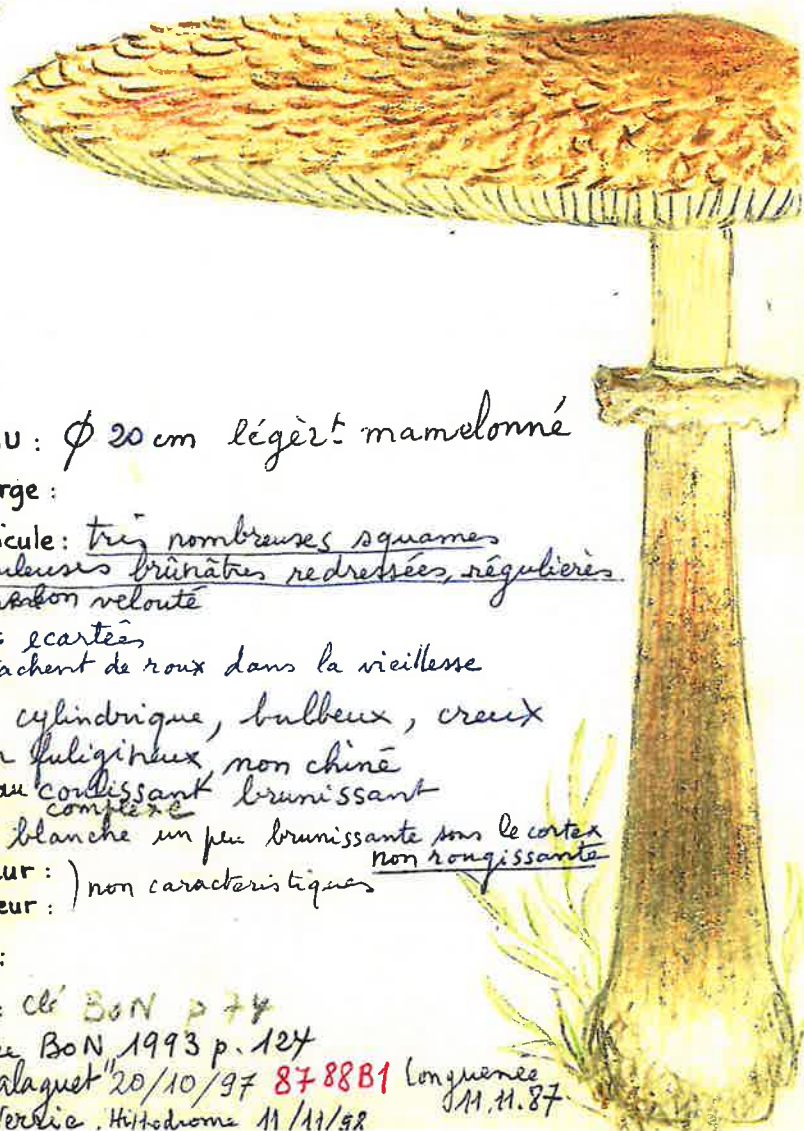 U : Ø 20 cm légèrt mamelonné
rge :
icule : très nombreuses squames
uleuses brûnâtres redressées, régulières
velouté
écartées
achent de roux dans la vieillesse
cylindrique, bulbeux, creux
fuligineux, non chiné
au coulissant brunissant
complexe
blanche un peu brunissante sous le cortex
non rougissante
ur :
eur :
) non caractéristiques
:
: clé BON p 74
BON 1993 p. 124
alaguet" 20/10/97 87 88B1 Longuenée
11.11.87
11/11/98